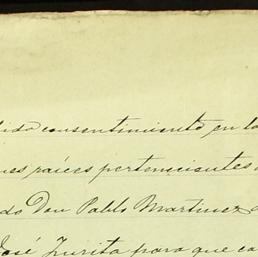 dido consentimiento en la
nes raices pertenecientes
do Don Pablo Martinez
José Zurita para que ca